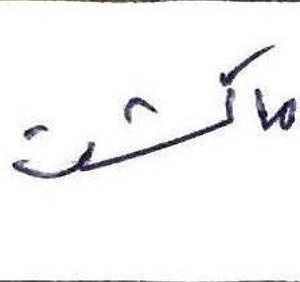 ماكشت